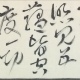 照見五
蘊皆空
度一切